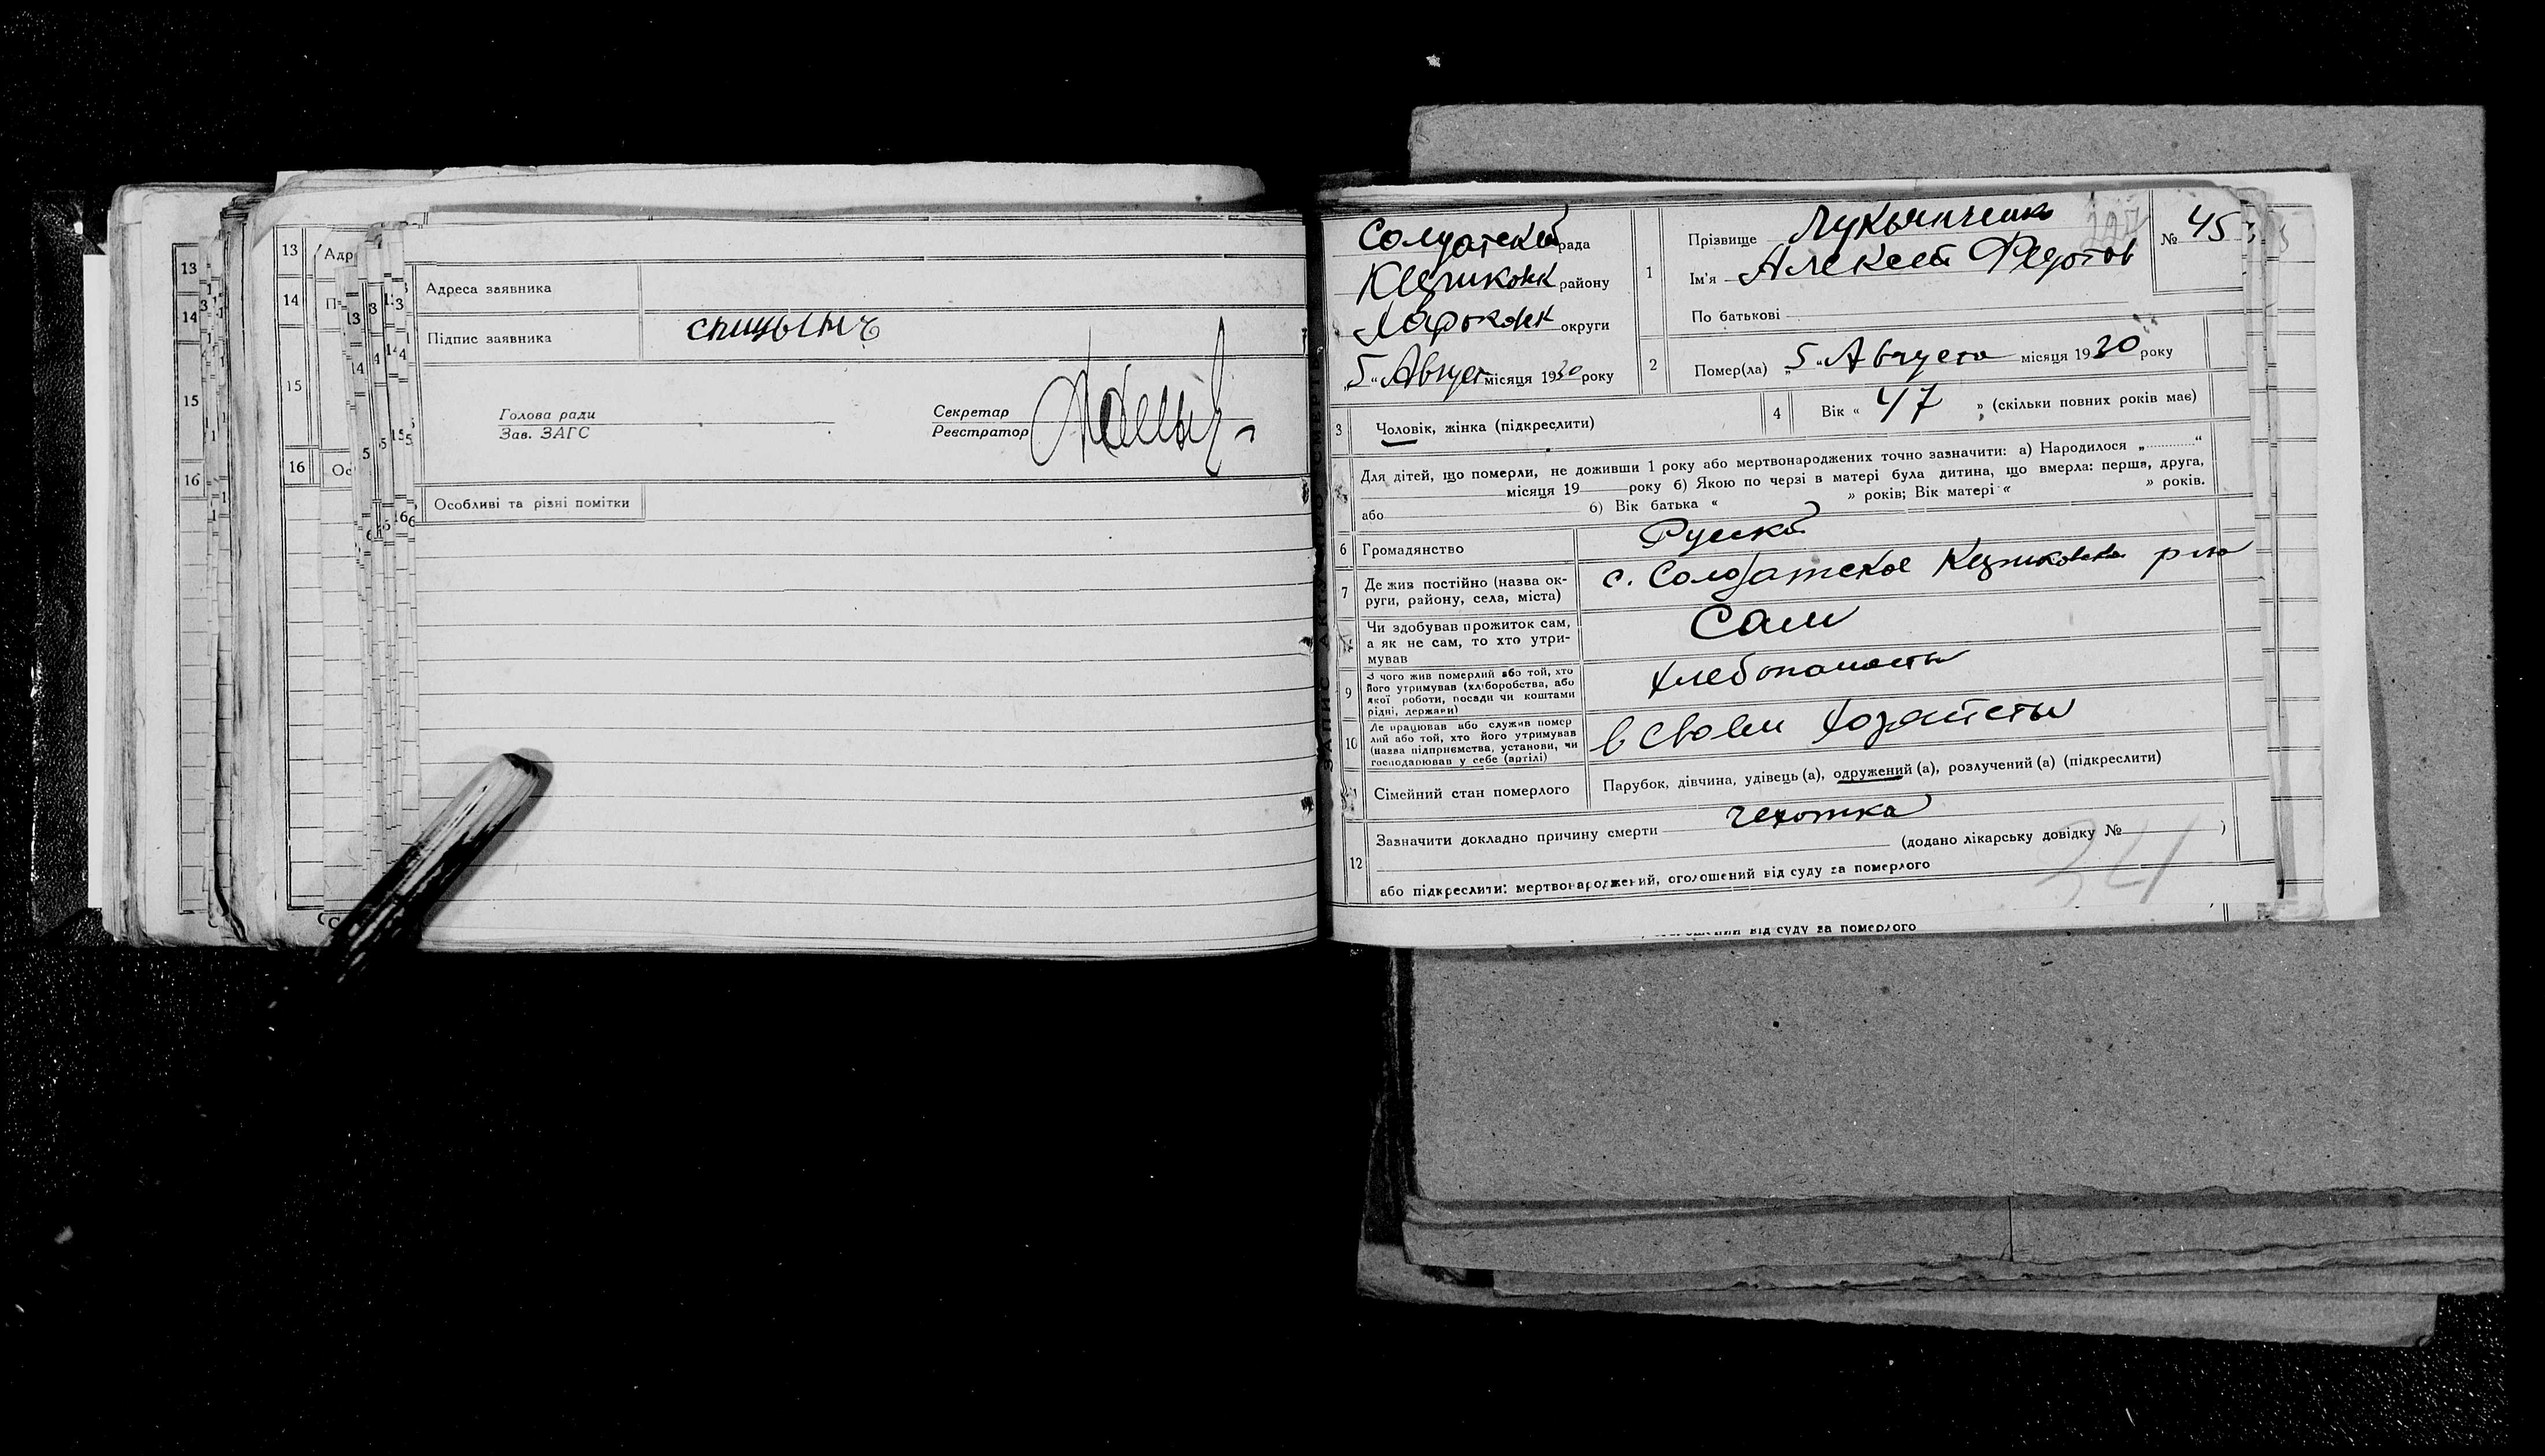 13
14
15
16
13
Адр
14
15
16
Ос
Адреса заявника
Підпис заявника
Голова ради
Зав. ЗАГС
Секретар
Реєстратор
Особливі та різні помітки
ЗАПИС АКТУ ПРО СМЕРТЬ
Солдатской рада
району
округи
„5“ Август місяця 1930 року
1
Прізвище Лукьянченко
Ім'я Алексей Федотов
По батькові
№ 45
2
Помер(ла) „5“ Августа місяця 1930 року
3
Чоловік, жінка (підкреслити)
4
Вік « 47 » (скільки повних років має)
Для дітей, що померли, не доживши 1 року або мертвонароджених точно зазначити: а) Народилося „ “
місяця 19 року б) Якою по черзі в матері була дитина, що вмерла: перша, друга,
або б) Вік батька « » років; Вік матері « » років.
6
Громадянство
Руской
7
Де жив постійно (назва ок-
руги, району, села, міста)
с. Солдатское
Чи здобував прожиток сам,
а як не сам, то хто утри-
мував
Сам
9
З чого жив померлий або той, хто
його утримував (хліборобства, або
якої роботи, посади чи коштами
рідні, держави)
10
Де працював або служив помер
лий або той, хто його утримував
(назва підприємства, установи, чи
господарював у себе (артілі)
в своем
Сімейний стан померлого
Парубок, дівчина, удівець (а), одружений (а), розлучений (а) (підкреслити)
12
Зазначити докладно причину смерти чехотка
(додано лікарську довідку № )
або підкреслити: мертвонароджений, оголошений від суду за померлого
341
від суду за померлого